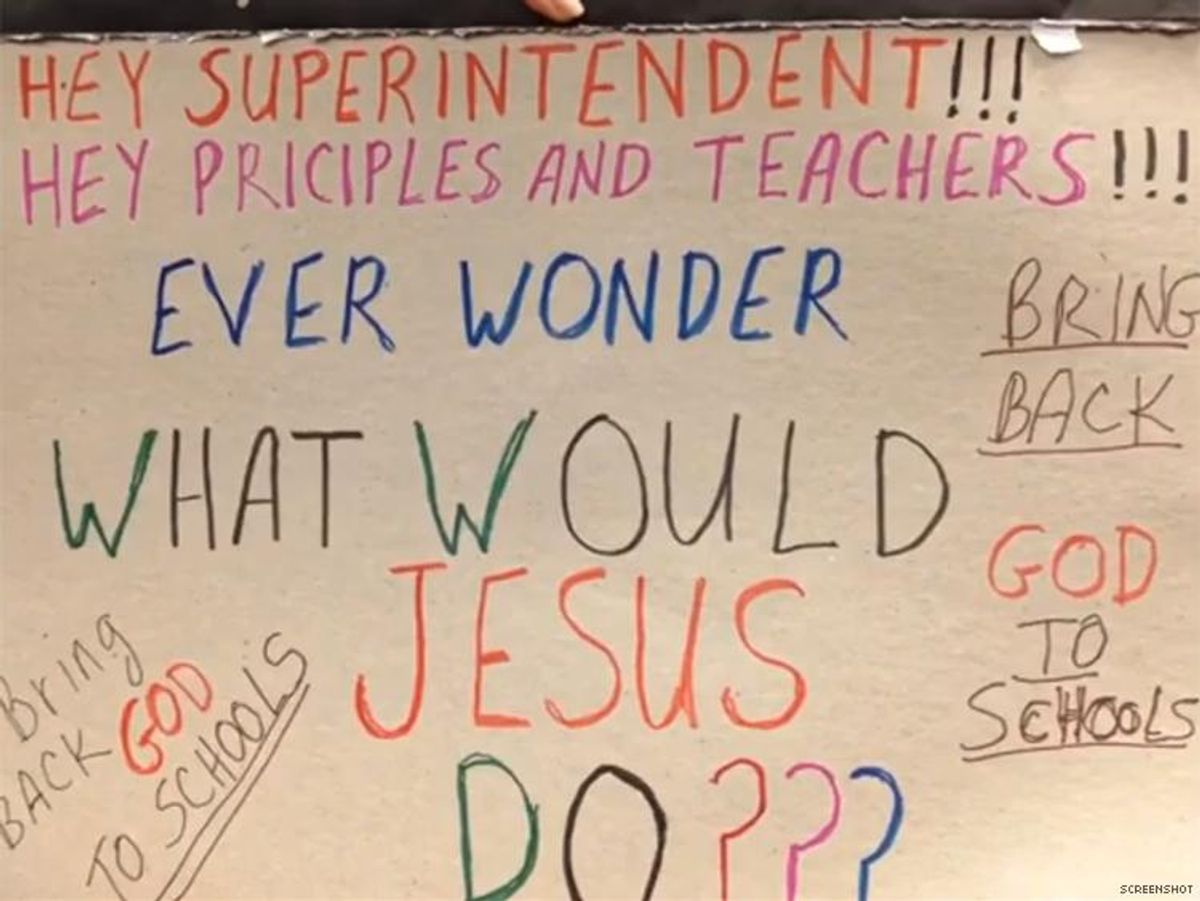 HEY SUPERINTENDENT!!!
HEY PRICIPLES AND TEACHERS!!!
EVER WONDER
WHAT WOULD
JESUS
DO???
BRING
BACK
GOD
TO
SCHOOLS
Bring
BACK GOD
TO SCHOOLS
SCREENSHOT